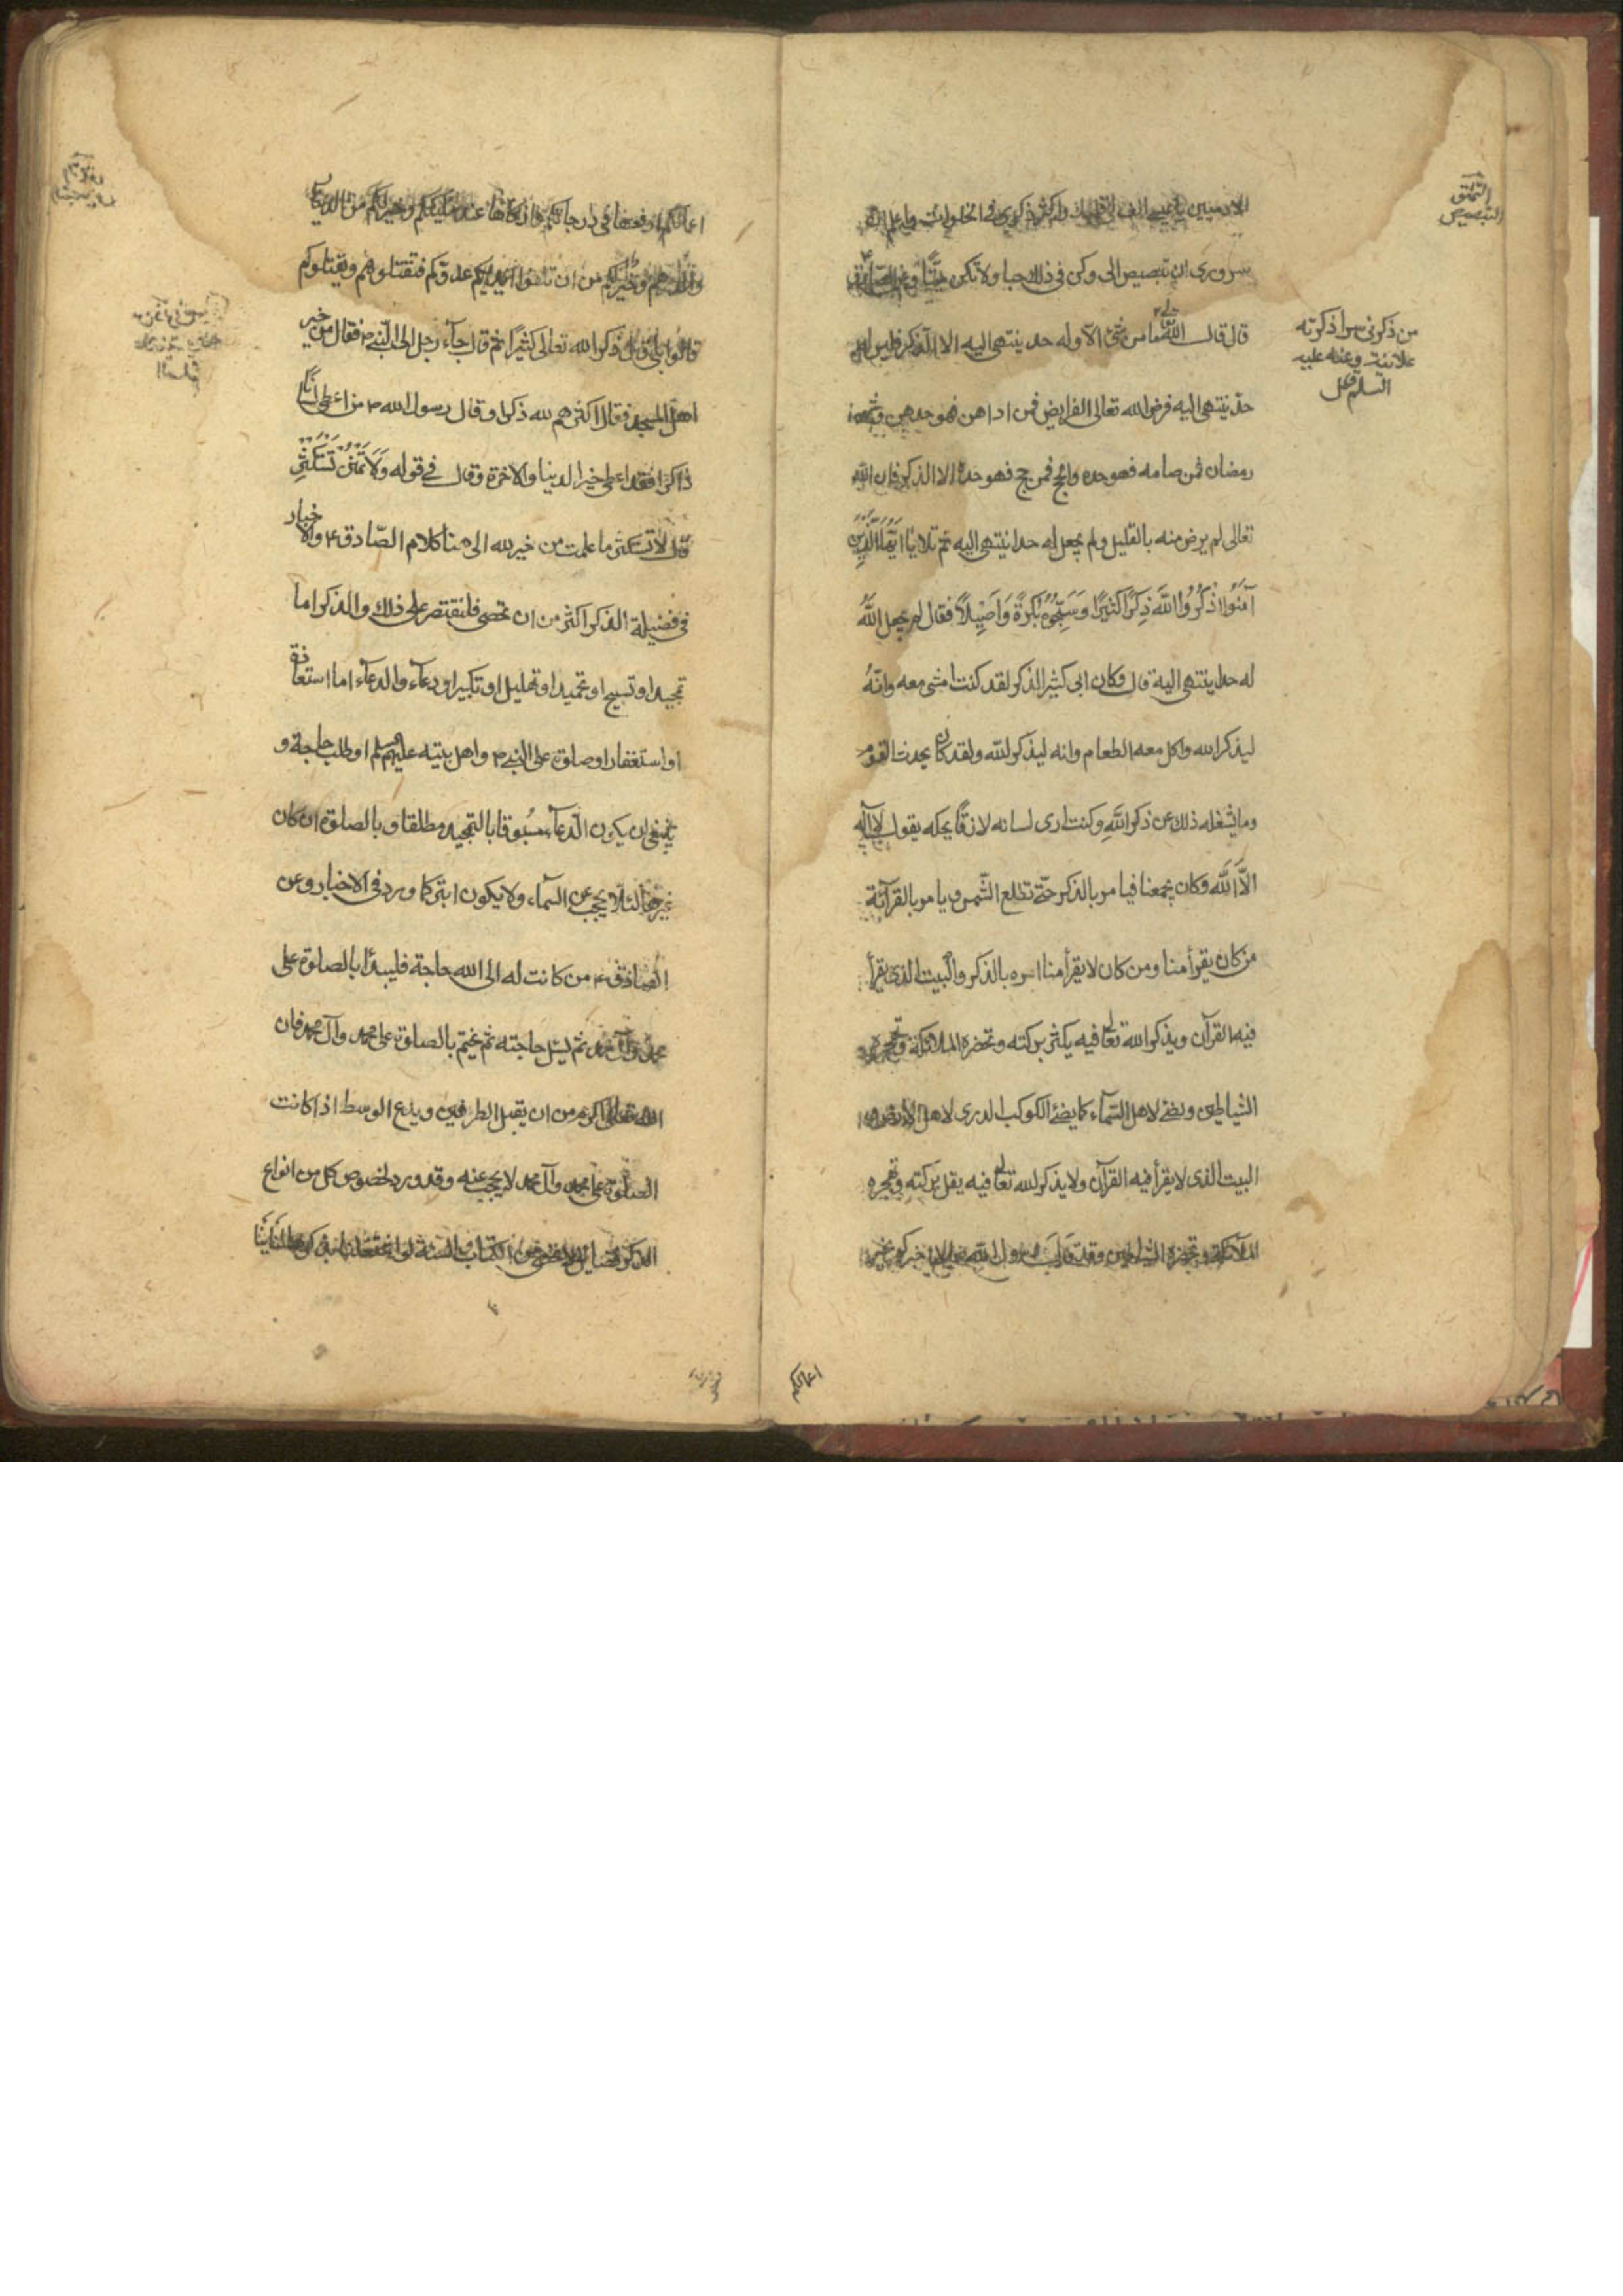 الادميين يا عيسى الن لى قلبك واكثر ذكرى فى الخلوات واعلم ان
سرورى ان تبصبص الى وكن فى ذلك حيا ولا تكن ميتا وعن الصادق
قال قال الله تعالى ما من شئ الا وله حد ينتهى اليه الا الذكر فليس له
حد ينتهى اليه فرض الله تعالى الفرايض فمن اداهن فهو حدهن وشهر
رمضان فمن صامه فهو حده والحج فمن حج فهو حده الا الذكر فان الله
تعالى لم يرض منه بالقليل ولم يجعل له حدا ينتهى اليه ثم تلا يا ايها الذين
آمنوا اذكروا الله ذكرا كثيرا وسبحوه بكرة واصيلا فقال لم يجعل الله
له حدا ينتهى اليه قال وكان ابى كثير الذكر لقد كنت امشى معه وانه
ليذكر الله واكل معه الطعام وانه ليذكر الله ولقد كان يحدث القوم
وما يشغله ذلك عن ذكر الله وكنت ارى لسانه لازقا بحكه يقول لا اله
الا الله وكان يجمعنا فيامر بالذكر حتى تطلع الشمس ويامر بالقرآئة
من كان يقرأ منا ومن كان لا يقرأ منا امره بالذكر والبيت الذى يقرأ
فيه القرآن ويذكر الله تعالى فيه يكثر بركته وتحضره الملائكة وتهجره
الشياطين ويضئ لاهل السمآء كما يضئ الكوكب الدرى لاهل الارض و
البيت الذى لا يقرأ فيه القرآن ولا يذكر الله تعالى فيه يقل بركته وتهجره
الملآئكة وتحضره الشياطين وقد قال رسول الله الا اخبركم بخير
اعمالكم
التملق
التبصبص
من ذكرنى سرا ذكرته
علانية وعنه عليه
السلم
اعمالكم ارفعها فى درجاتكم وازكاها عند مليككم وخير لكم من الدينار
والدرهم وخير لكم من ان تلقوا عدوكم فتقتلوهم ويقتلوكم
قالوا بلى قال ذكر الله تعالى كثيرا ثم قال جآء رجل الى النبى ص فقال من خير
اهل المسجد فقال اكثرهم لله ذكرا وقال رسول الله ص من اعطى لسانا
ذاكرا فقد اعطى خير الدنيا والاخرة وقال فى قوله ولا تمنن تستكثر
قال لا تستكثر ما عملت من خير لله الى هنا كلام الصادق ع والاخبار
فى فضيلة الذكر اكثر من ان تحصى فلنقتصر على ذلك والذكر اما
تمجيد او تسبيح او تحميد او تهليل او تكبير او دعآء والدعآء اما استعاذة
او استغفار او صلوة على النبى ص واهل بيته عليهم السلم او طلب حاجة و
ينبغى ان يكون الدعآء مسبوقا بالتمجيد مطلقا وبالصلوة ان كان
غيرها لئلا يحجب عن السمآء ولا يكون ابتر كما ورد فى الاخبار وعن
الصادق ع من كانت له الى الله حاجة فليبدأ بالصلوة على
محمد وآل محمد ثم يسئل حاجته ثم يختم بالصلوة على محمد وآل محمد فان
الله تعالى اكرم من ان يقبل الطرفين ويدع الوسط اذا كانت
الصلوة على محمد وآل محمد لا يحجب عنه وقد ورد لخصوص كل من انواع
الذكر فضايل